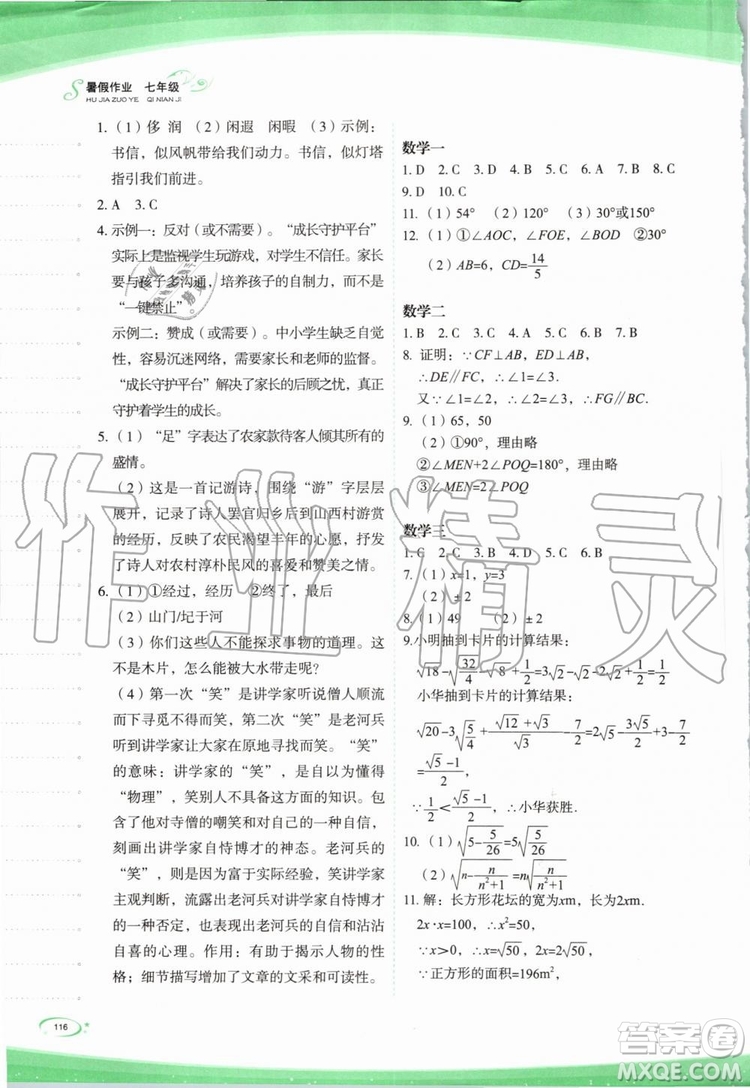 暑假作业 七年级
HU JIA ZUO YE QI NIAN JI
1.（1）侈 润 （2）闲遐 闲暇 （3）示例：
书信，似风帆带给我们动力。书信，似灯塔
指引我们前进。
2. A 3. C
4. 示例一：反对（或不需要）。“成长守护平台”
实际上是监视学生玩游戏，对学生不信任。家长
要与孩子多沟通，培养孩子的自制力，而不是
“一键禁止”
示例二：赞成（或需要）。中小学生缺乏自觉
性，容易沉迷网络，需要家长和老师的监督。
“成长守护平台”解决了家长的后顾之忧，真正
守护着学生的成长。
5.（1）“足”字表达了农家款待客人倾其所有的
盛情。
（2）这是一首记游诗，围绕“游”字层层
展开，记录了诗人罢官归乡后到山西村游赏
的经历，反映了农民渴望丰年的心愿，抒发
了诗人对农村淳朴民风的喜爱和赞美之情。
6.（1）①经过，经历 ②终了，最后
（2）山门/圮于河
（3）你们这些人不能探求事物的道理。这
不是木片，怎么能被大水带走呢？
（4）第一次“笑”是讲学家听说僧人顺流
而下寻觅不得而笑。第二次“笑”是老河兵
听到讲学家让大家在原地寻找而笑。“笑”
的意味：讲学家的“笑”，笑寺僧不懂得
“物理”，笑别人不具备这方面的知识。包
含了他对寺僧的嘲笑和对自己学识的夸耀，
刻画出讲学家自恃博才的神态。老河兵的
“笑”，则是富于实际经验，笑讲学家的
主观判断，流露出老河兵对讲学家自恃博才
的一种否定，表现出老河兵的自信和沾沾
自喜的心理。作用：有助于揭示人物的性
格；细节描写增加了文章的文采和可读性。
116
数学一
1. D 2. C 3. D 4. B 5. C 6. A 7. B 8. C
9. D 10. C
11.（1）54° （2）120° （3）30°或150°
12.（1）①∠AOC，∠FOE，∠BOD ②30°
（2）AB=6，CD=14/5
数学二
1. B 2. C 3. D 4. D 5. C 6. B 7. C
8. 证明：∵CF⊥AB，ED⊥AB，
∴DE∥FC，∴∠1=∠3.
又∵∠1=∠2，∴∠2=∠3，∴FG∥BC.
9.（1）65，50
（2）①90°，理由略
②∠MEN+2∠POQ=180°，理由略
③∠MEN=2∠POQ
数学三
1. C 2. C 3. C 4. D 5. C 6. B
7.（1）x=1，y=3
（2）±2
8.（1）49 （2）±2
9.小明抽到卡片的计算结果：
√18-√(32/4)-√8+1/2=3√2-2√2-2√2+1/2=1/2-√2
小华抽到卡片的计算结果：
√20-3√(5/4)+(√12+√3)/√3-7/2=2√5-3/2√5+3-7/2
=(√5-1)/2，
∵1/2<(√5-1)/2，∴小华获胜.
10.（1）√(5-5/26)=5√(5/26)
（2）√(n-n/(n²+1))=n√(n/(n²+1))
11. 解：长方形花坛的宽为xm，长为2xm.
2x·x=100，∴x²=50，
∵x＞0，∴x=√50，2x=2√50，
∵正方形的面积=196m²，
作业精灵
答案圈
MXQE.COM